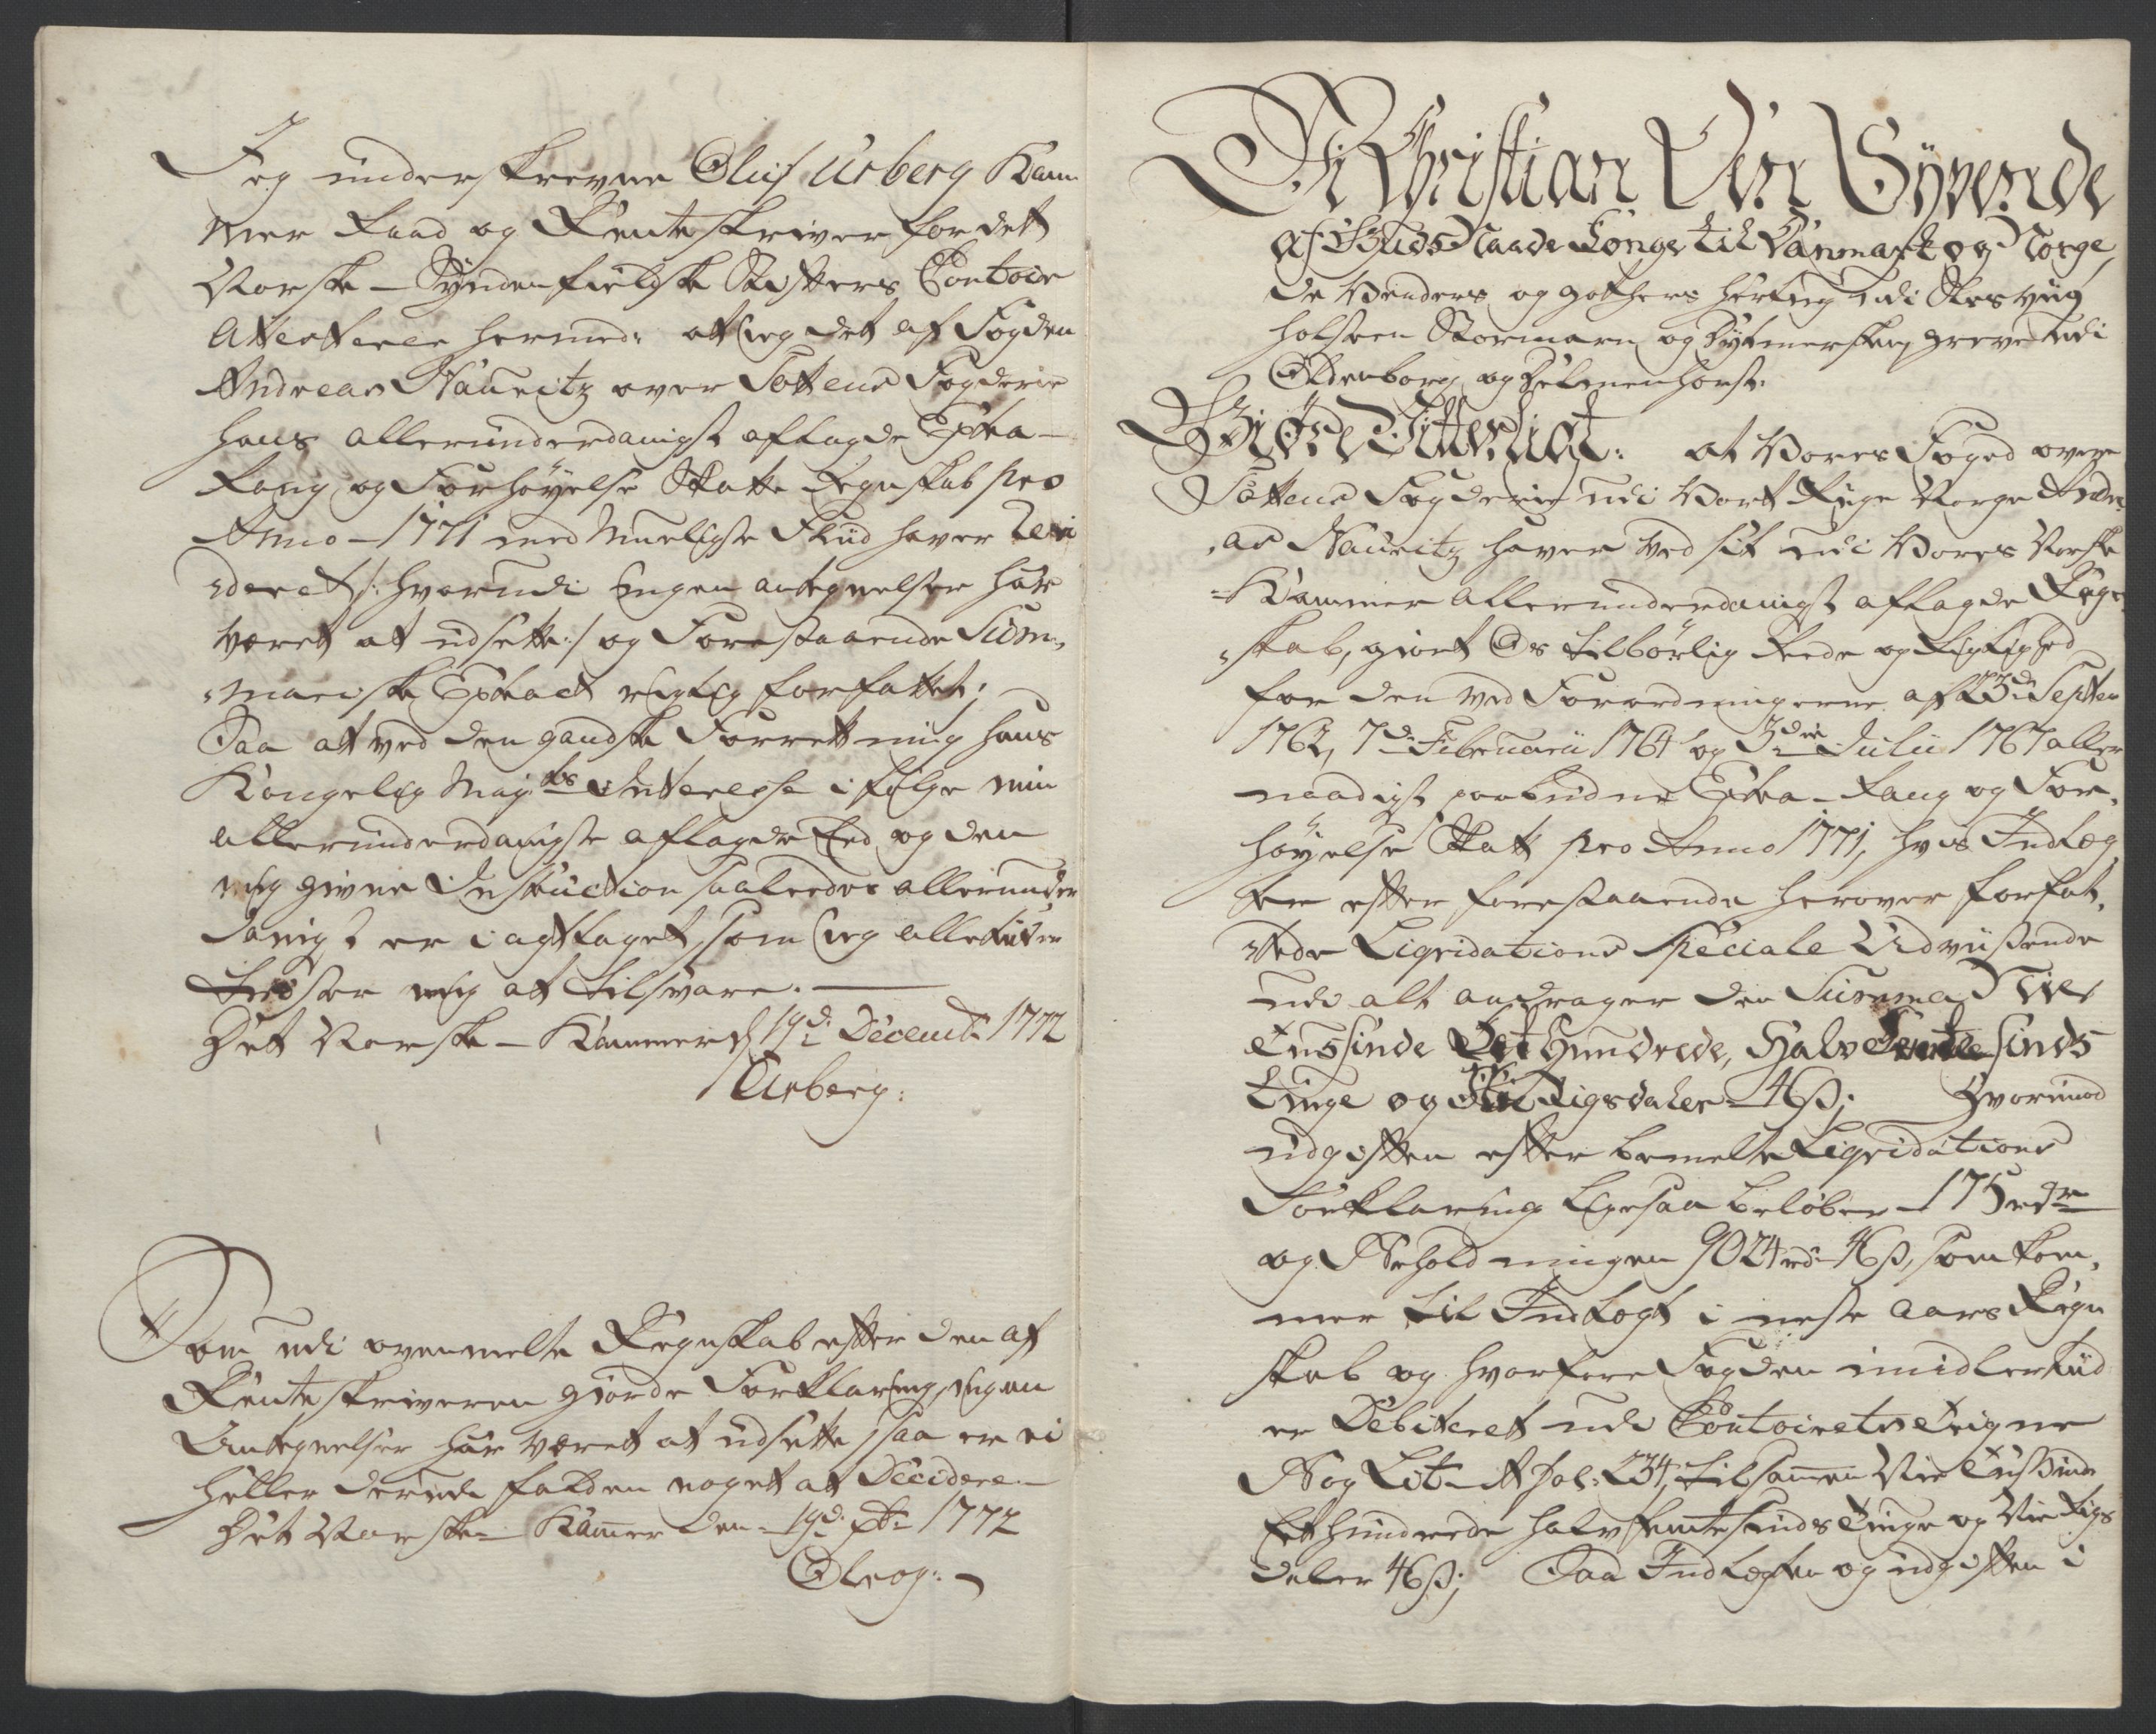 Jeg underskrevne Oluf Urberg Kam
mer Raad og Renteskriver for det
Norske - Syndenfieldske Stifters Contoir
Attesterer hermed: at jeg det af Fogden
Andreas Nauritz over Tottens Fogderie
hans allerunderdanigst aflagde Extra-
Rang og Forhøyelse Skatte Regnskab pro
Anno - 1771 med Mueligste Fliid haver Revi
deret /: hvorudi Jngen antegnelser har
været at udsette :/ og Forestaaende Sum,
mariske Extract rigtig forfattet;
Saa at ved den gandske Forretning hans
Kongelig Maj.ts Interesse i følge min
allerunderdanigste aflagde Eed og den
mig givne Instruction saaledes allerunder
danigst er i agttaget, som jeg alletider
trøster mig at tilsvare.
Det Norske - Kammer d 19de Decembr 1772
Urberg:
Som udi ovenmelte Regnskab efter den af
Renteskriveren giorde Forklaring, ingen
Antegnelser har været at udsætte, saa er ei
heller derudi falden noget at Decidere -
Det Norske - Kammer den - 19de Xbr 1772
Vi Christian Den Syvende
af Guds Naade Konge til Danmark og Norge,
de Venders og Gothers Hertug udi Slesvig
Holsteen Stormarn og Dytmersken, Greve udi
Oldenborg og Delmenhorst.
Giøre Vitterligt: at Vores Foged over
Tottens Fogderie udi Vort Rige Norge Andre
as Nauritz haver ved sit udi Vores Norske
Kammer allerunderdanigst aflagde Regn
skab, giort Os tilbørlig Rede og Rigtighed
for den ved Forordningerne af 23de Septbr
1762, 7de Februarii 1764 og 3die Julii 1767 aller
naadigst paabudne Extra - Rang og For,
høyelse Skatt pro Anno 1771, hvis Indtæg
ter efter forestaaende herover forfat,
tede Liqvidations Speciale Udviisende
udi alt andrager den Summa Nie
Tussinde Et Hundrede, Halv Femte Sinds
Tiuge og Nie Rigsdaler 46 ß; Hvorimod
udgiften efter bemelte Liqvidations
Forklaring ligesaa beløber - 175 rdr
og Beholdningen 9024 rd 46 ß, som kom,
mer til Indtægt i neste Aars Regn
skab og hvorfore Fogden imidlertiid
er Debiteret udi Contoirets Eigne
Bog Lit: A Fol: 234, tilsammen Nie Tussinde
Et hundrede halvfemtesinds Tiuge og Nie Rigs
daler 46 ß; Saa Indtægten og udgiften i